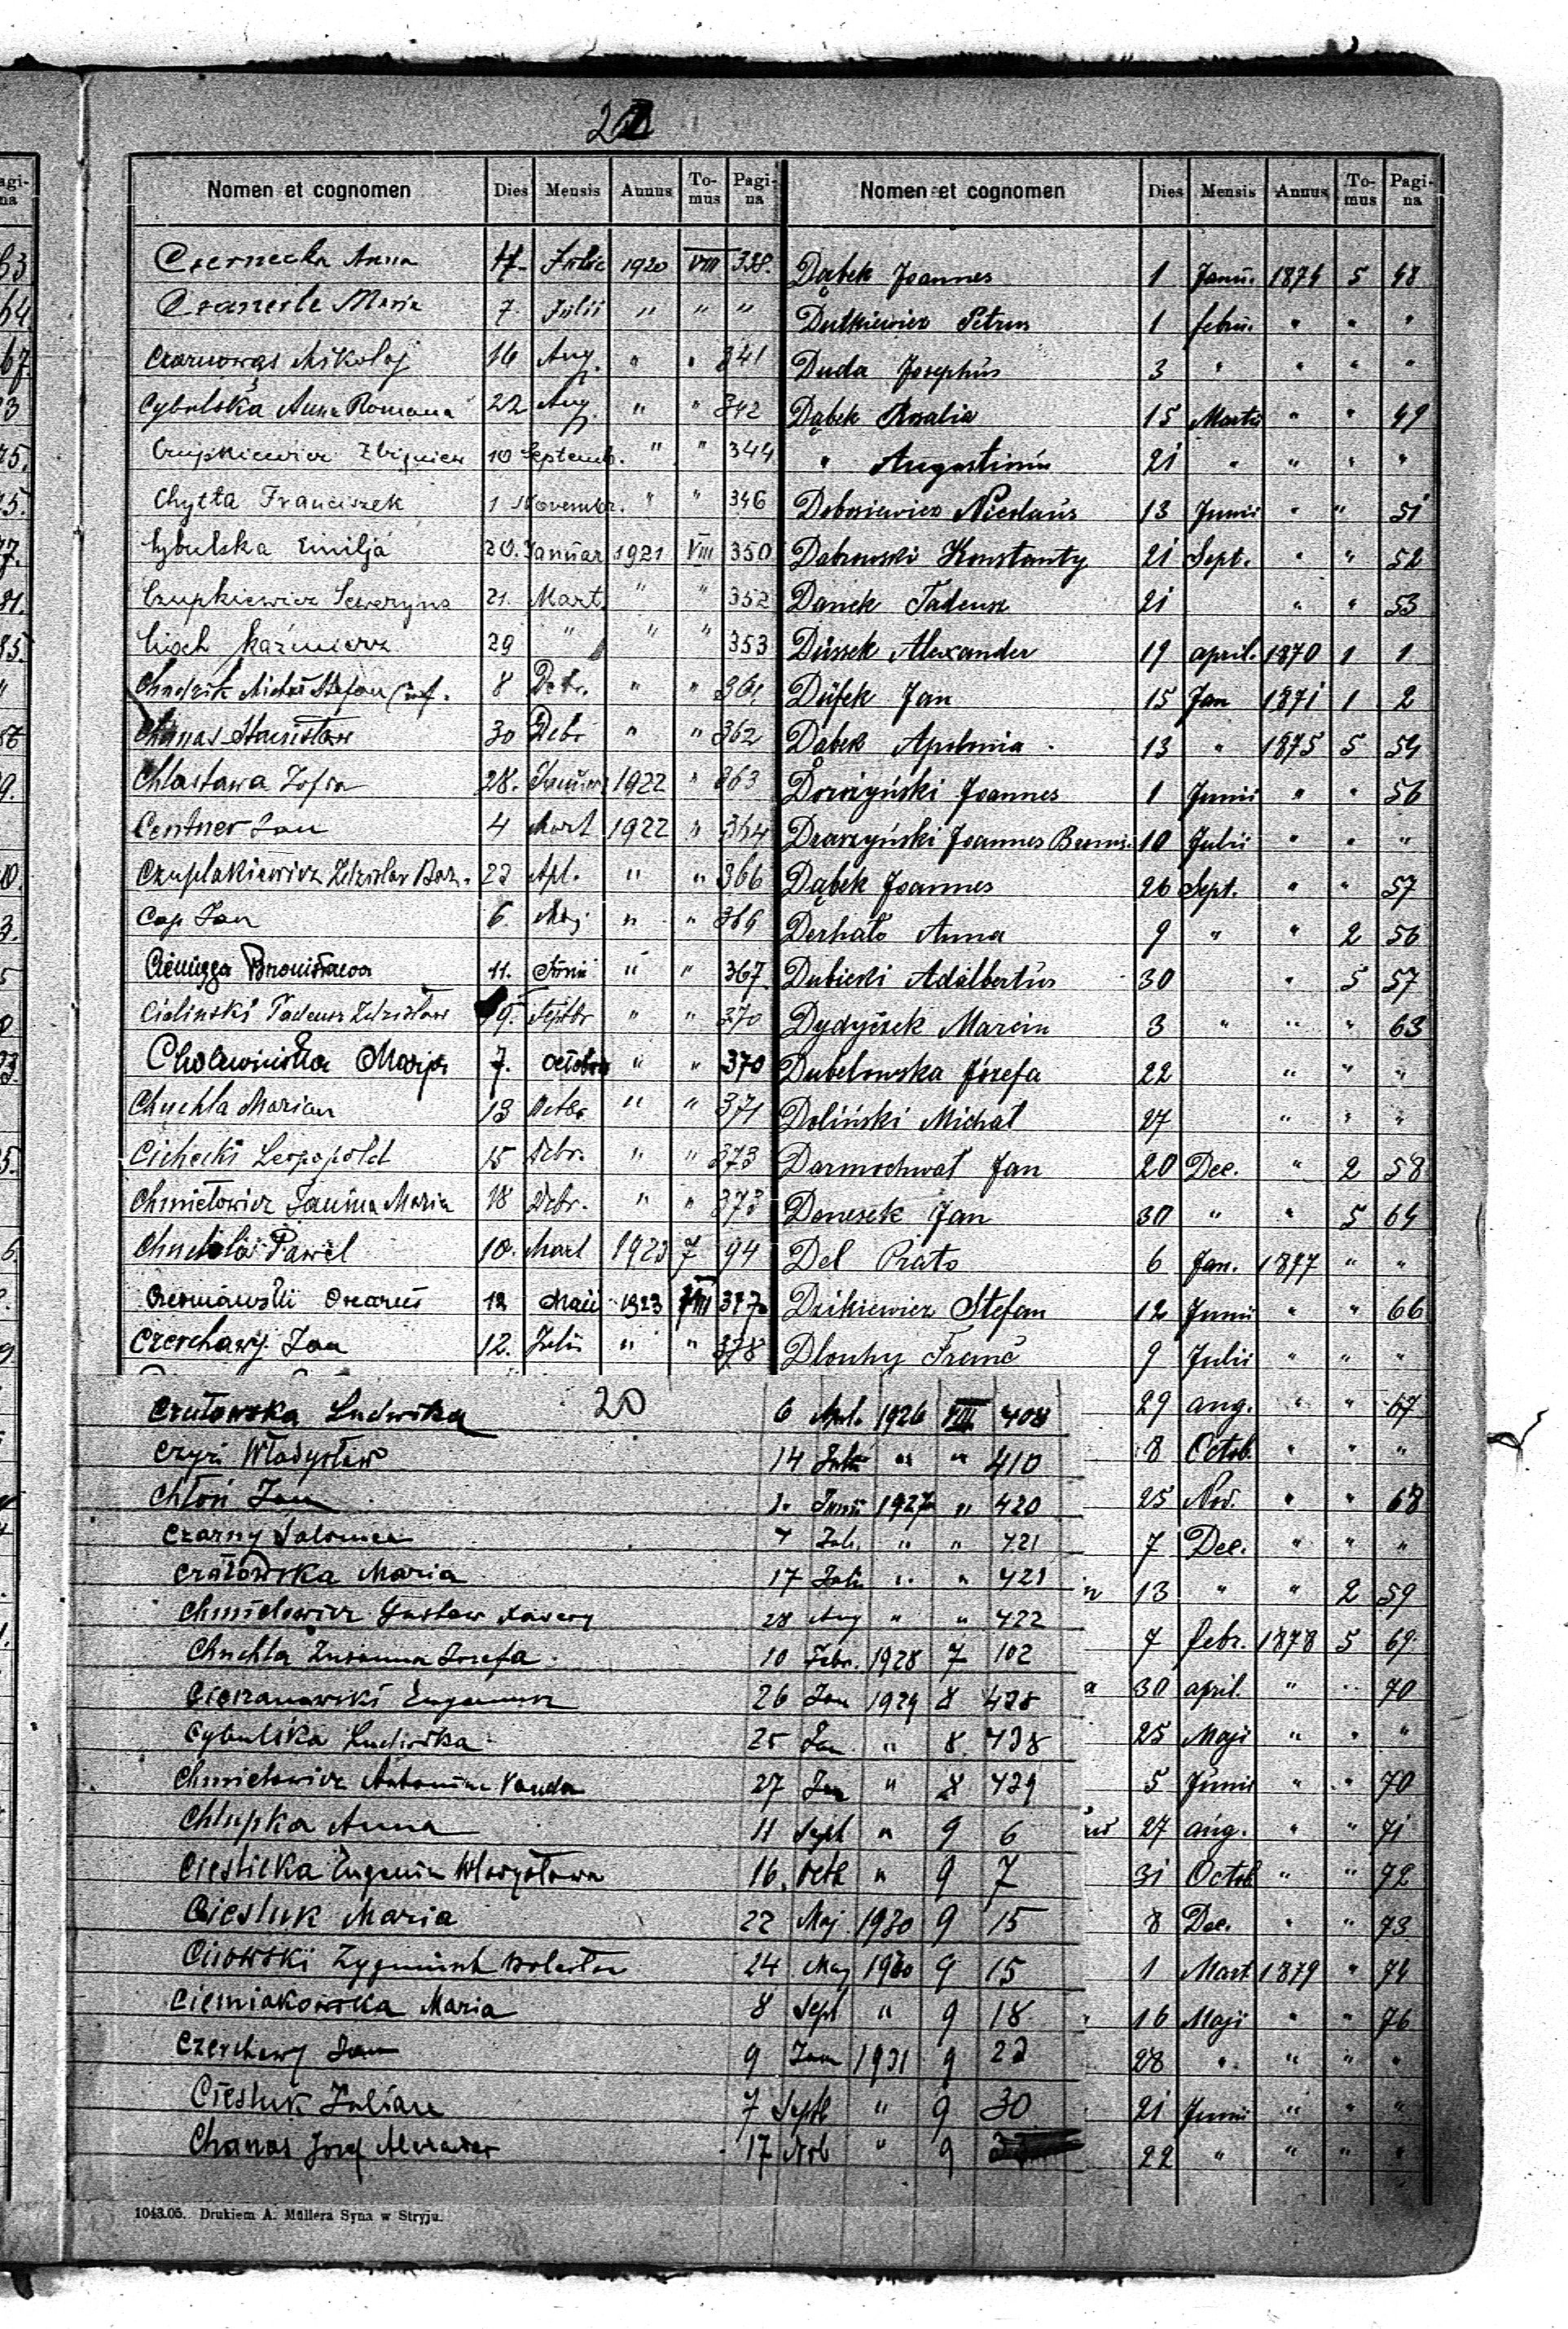 21
Nomen et cognomen Dies Mensis Annus To-mus Pagi-na
Czernecka Anna 4. Julii 1920 VIII 338.
Maria 7. Julii " " "
Czarnowąs Mikołaj 16 Aug. " " 341
Cybulska Anna Romana 22 Aug. " " 342
Czupkiewicz Zbigniew 10 Septemb. " " 344
Chytła Franciszek 1 Novembr. " " 346
Cybulska Emilja 20. Januar 1921 VIII 350
Czupkiewicz Seweryna 21. Mart. " " 352
Kazimierz 29 " " " 353
8 " "
Chanas Stanisław 30 " " 362
Chlastawa Zofia 28. 1922 " 363
Centner Jan 4 Mart 1922 " 364
Czuplakiewicz Zdzisław 23 Apl. " " 366
Cap Jan 6. Maj " " 366
Bronisława 11. Junii " " 367
Cieliński Tadeusz Zdzisław Septbr " " 370
Cholewińska Marja 7. October " " 370
Chuchla Marian 13 Octbr " " 371
Cichecki Leopold 15 " " 373
Chmielowicz Janina Maria 18 " " 373
Paweł 10. Mart 1923 7 94
12 Maii 1923 VIII 377
Czerchawy Jan 12. Julii " " 378
Nomen et cognomen Dies Mensis Annus To-mus Pagi-na
Dąbek Joannes 1 Janu. 1874 5 48
Dutkiewicz Petrus 1 febru. " " "
Duda Josephus 3 " " " "
Dąbek Rosalia 15 Martii " " 49
" Augustinus 21 " " " "
Dobosiewicz Nicolaus 13 Junii " " 51
Dabrowski Konstanty 21 Sept. " " 52
Danek Tadeusz 21 " " 53
Dussek Alexander 19 april. 1870 1 1
Dufek Jan 15 Jan 1871 1 2
Dąbek Apolonia 13 " 1875 5 54
Joannes 1 Junii " " 56
Joannes 10 Julii " " "
Dąbek Joannes 26 Sept. " " 57
Derhało Anna 9 " " 2 56
Dubicki Adalbertus 30 5 57
Dydyszek Marcin 3 " " " 63
Dubelowska Józefa 22 " " "
Doliński Michał 27 " " "
Darmochwał Jan 20 Dec. " 2 58
Doneszek Jan 30 " " 5 64
Del Prato 6 Jan. 1877 " "
Dzikiewicz Stefan 12 Junii " " 66
Dlouhy Franc 9 Julii " " "
20
Czułowska Ludwika 6 Apl. 1926 VIII 408
Czyż Władysław 14 Julii " " 410
Chłoń Jan 1. Junii 1927 " 420
Czarny Salomea 7 Juli. " " 421
Maria 17 Julii " " 421
Chmielowicz Gustaw Xawery 28 Aug " " 422
Chuchla Zuzanna Józefa 10 Febr. 1928 7 102
Cieszanowski Eugeniusz 26 Jan 1929 8 438
Cybulska Ludwika 25 Jan " 8. 438
Chmielowicz Antonina Vanda 27 Jan " 8 439
Chlupka Anna 11 Sept " 9 6
Cieślicka Eugenia Władysława 16. Octb " 9 7
Ciesluk Maria 22 Maj 1930 9 15
Zygmunt 24 Maj 1930 9 15
Ciemiakowska Maria 8 Sept " 9 18
Czerchawy Jan 9 Jan 1931 9 23
Ciesluk Julian 7 Septb " 9 30
Chanas Józef 17 Nvb " 9
29 aug. " " 67
8 Octob. " " "
25 Nov. " " 68
7 Dec. " " "
13 " " 2 59
7 febr. 1878 5 69
30 april. " " 70
25 Maji " " "
5 Junii " " 70
27 aug. " " 71
31 Octob " " 72
8 Dec. " " 73
1 Mart 1879 " 74
16 Maji " " 76
28 " " " "
21 Junii " " "
22 " " " "
1043.05. Drukiem A. Müllera Syna w Stryju.